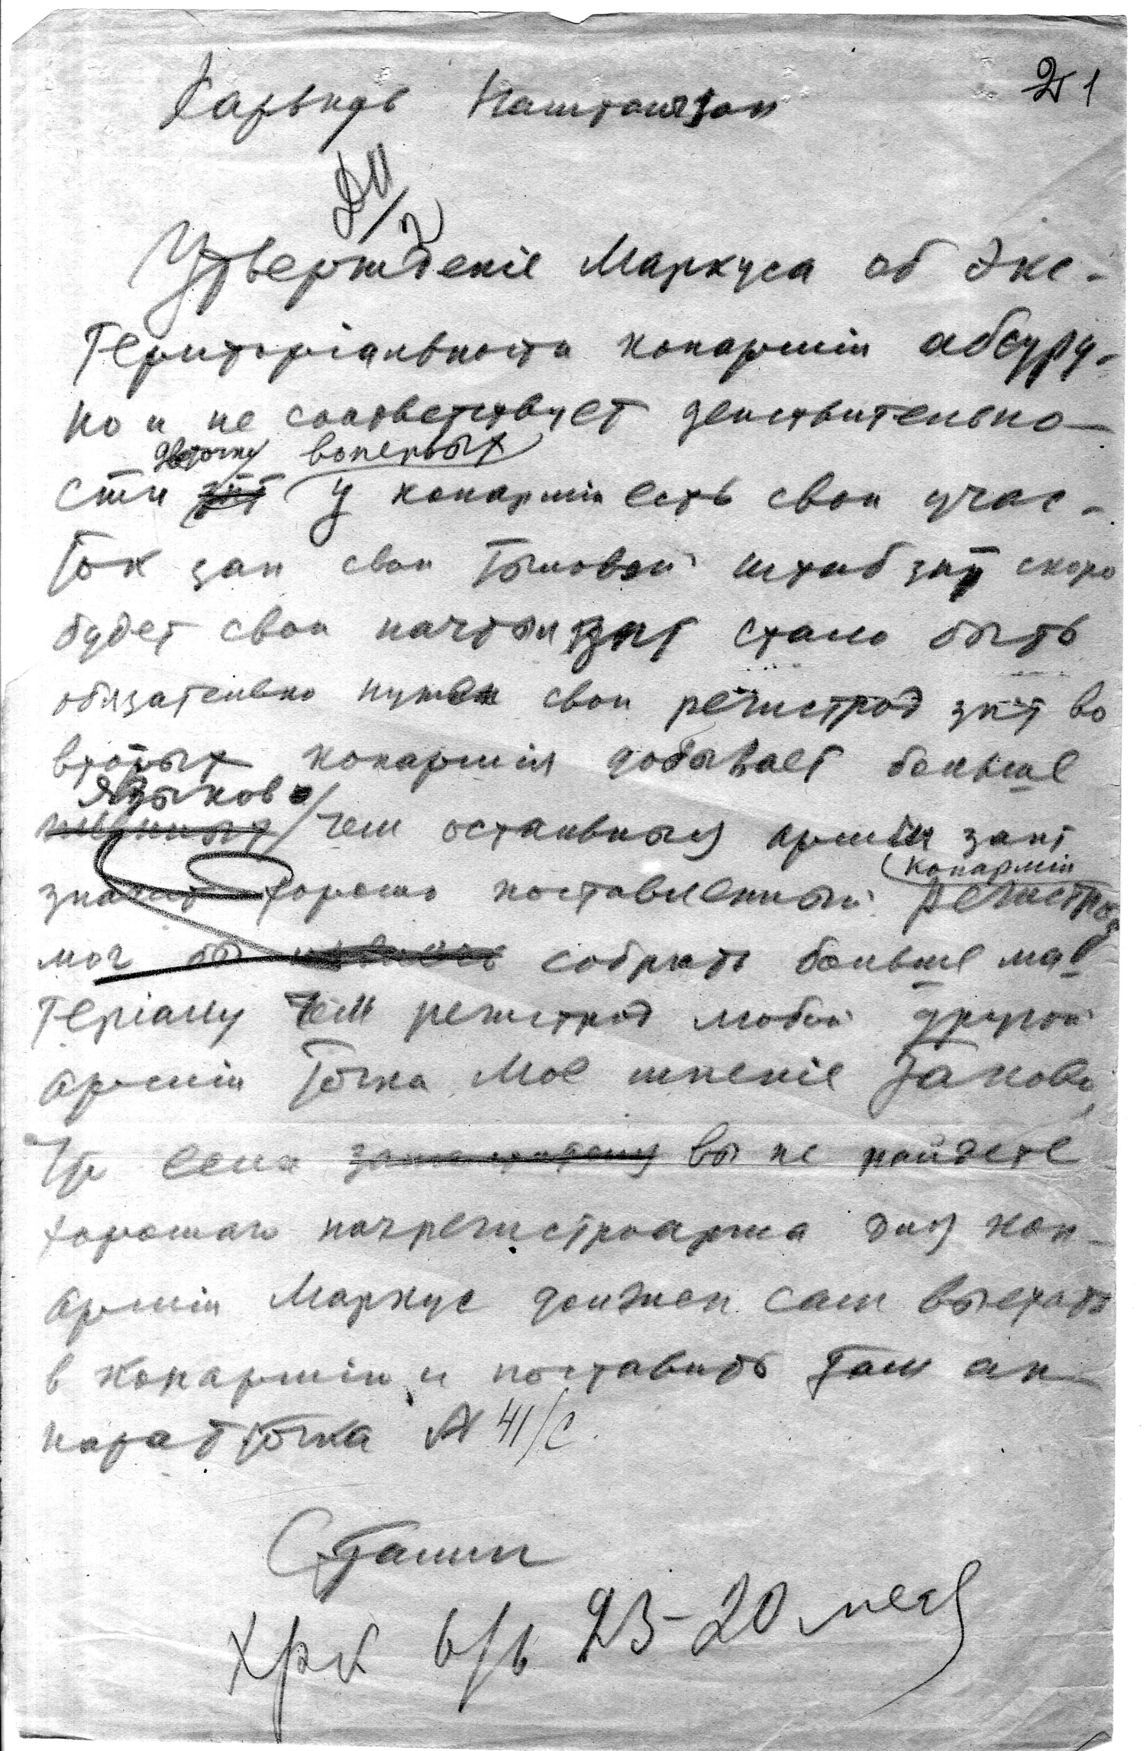 21
Харьков Наштоюгзап
Утверждение Маркуса об экс-
територіальности конарміи абсурд-
но и не соответствует действительно-
сти зпт
воперых
у конарміи есть свои учас-
ток зап свои тыловой штаб зпт скоро
будет свои начтыл зпт стало быть
обязательно нужен свои регистрод зпт во
вторых конармія добывает больше
языков
чем остальныя арміи зпт
значит хорошо поставленный
конарміи
регистрод
мог бы собрать больше ма-
теріалу чем регистрод любой другой
арміи точка Мое мненіе таково,
что если вы не найдете
хорошаго начрегистроарма для кон-
арміи Маркус должен сам выехать
в конармію и поставить там ап-
парат точка № 41/с
Сталин
Хрк 23-20